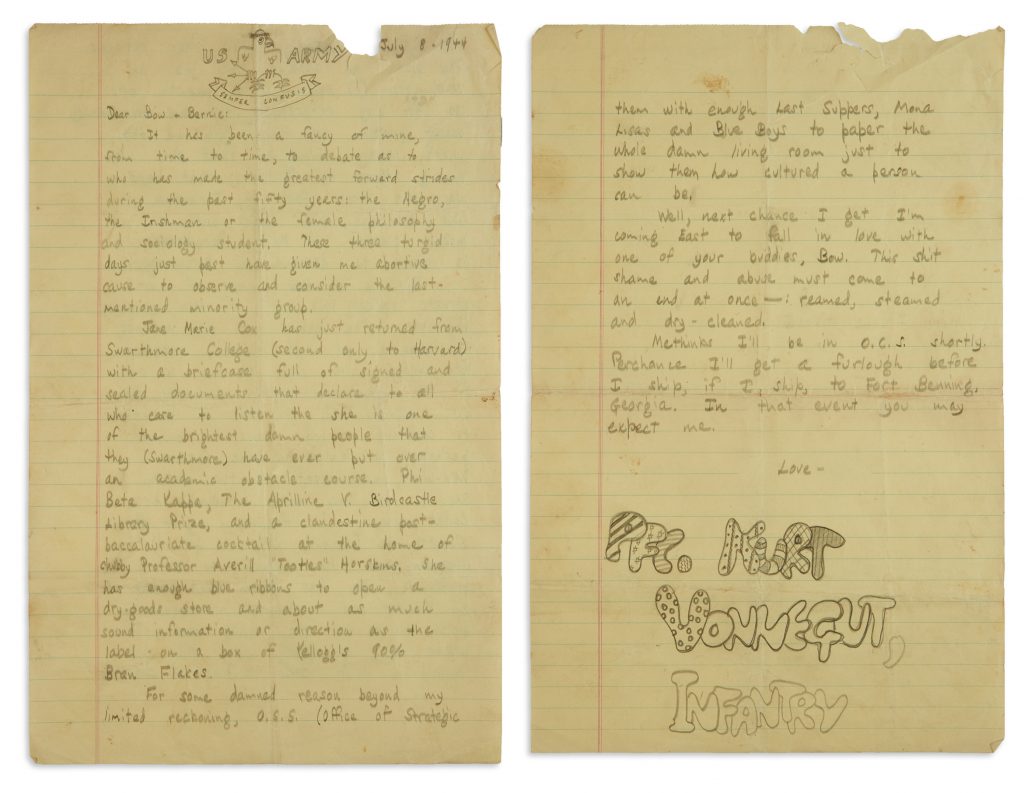 US ARMY
July 8 - 1944
SEMPER CONFUSIS
Dear Bow & Bernie:
It has been a fancy of mine,
from time to time, to debate as to
who has made the greatest forward strides
during the past fifty years: the Negro,
the Irishman or the female philosophy
and sociology student. These three turgid
days just past have given me abortive
cause to observe and consider the last-
mentioned minority group.
Jane Marie Cox has just returned from
Swarthmore College (second only to Harvard)
with a briefcase full of signed and
sealed documents that declare to all
who care to listen the she is one
of the brightest damn people that
they (Swarthmore) have ever put over
an academic obstacle course. Phi
Beta Kappa, The Aprilline V. Birdcastle
Library Prize, and a clandestine post-
baccalauriate cocktail at the home of
chubby Professor Averill "Tootles" Horskins. She
has enough blue ribbons to open a
dry-goods store and about as much
sound information or direction as the
label on a box of Kellogg's 90%
Bran Flakes.
For some damned reason beyond my
limited reckoning, O.S.S. (Office of Strategic
them with enough Last Suppers, Mona
Lisas and Blue Boys to paper the
whole damn living room just to
show them how cultured a person
can be.
Well, next chance I get I'm
coming East to fall in love with
one of your buddies, Bow. This shit
shame and abuse must come to
an end at once —: reamed, steamed
and dry-cleaned.
Methinks I'll be in O.C.S. shortly.
Perchance I'll get a furlough before
I ship, if I ship, to Fort Benning,
Georgia. In that event you may
expect me.
Love -
PFC. KURT
VONNEGUT,
INFANTRY